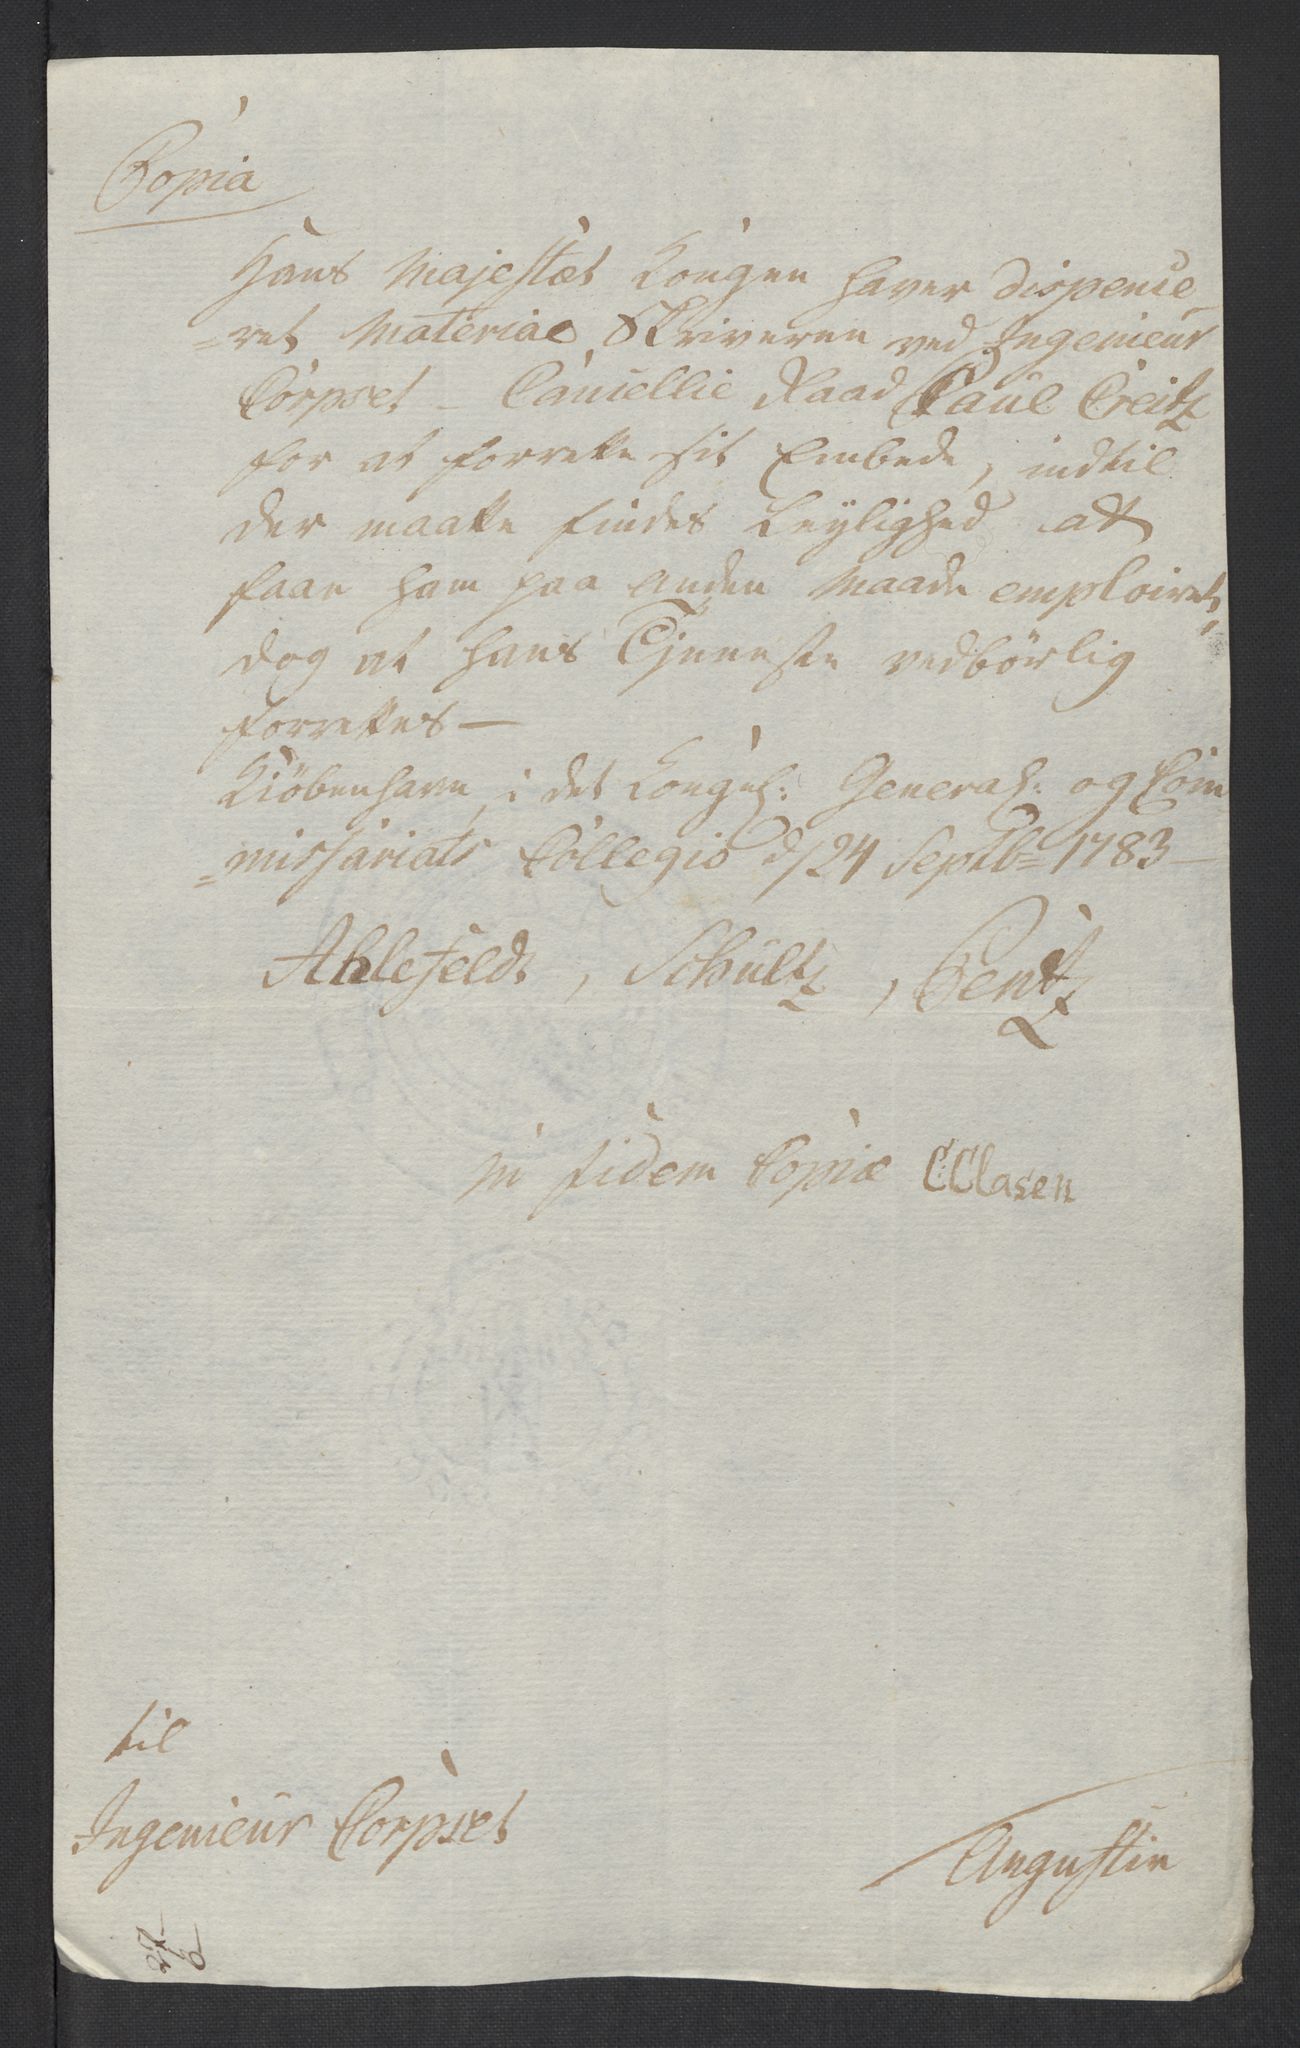 Copia
Hans Majestæt Kongen haver dispence
=ret Material Skriveren ved Ingenieur
Corpset - Cancellie Raad Paul Creitz
for at forrette sit Embede, indtil
der maatte findes Leylighed at
faae ham paa anden Maade emploiret,
dog at hans Tjeneste vedbörlig
forrettes —
Kiöbenhavn, i det Kongel: General: og Com
=missariats Collegio d/24 Septbr 1783 —
Ahlefeldt, Schultz, Bentz
In fidem Copiæ CClasen
til
Ingenieur Corpset
Augustin